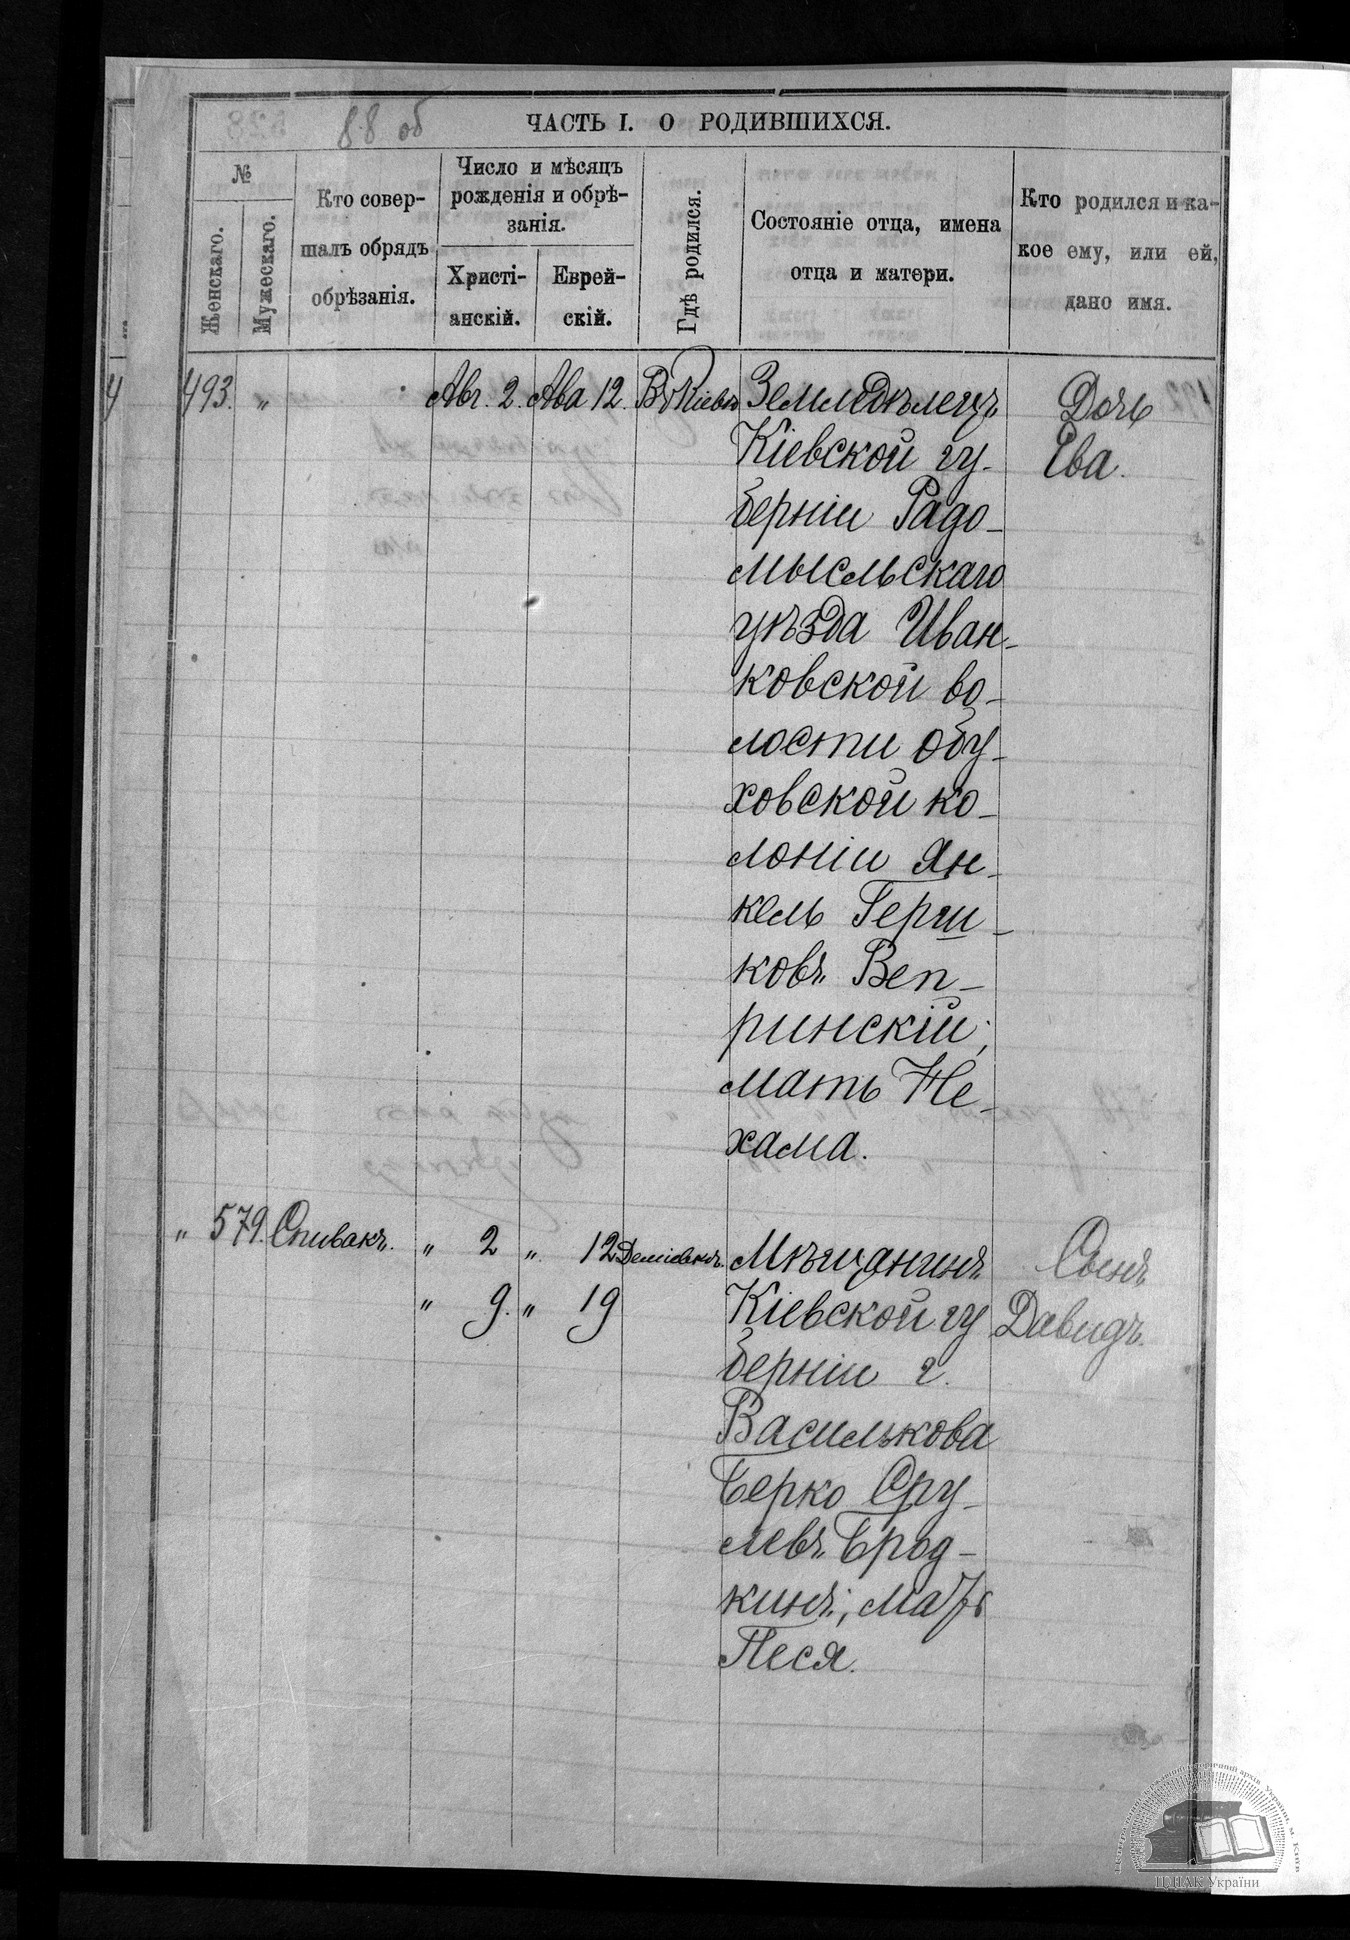 88 об
ЧАСТЬ I. О РОДИВШИХСЯ.
№
Женскаго.
Мужескаго.
Кто совер-
шалъ обрядъ
обрѣзанія.
Число и мѣсяцъ
рожденія и обрѣ-
занія.
Христі-
анскій.
Еврей-
скій.
Гдѣ родился.
Состояніе отца, имена
отца и матери.
Кто родился и ка-
кое ему, или ей,
дано имя.
493. " Авг. 2. Ава 12. Въ Кіевѣ Земледѣлецъ Дочь
Кіевской гу- Ева.
берніи Радо-
мысльскаго
уѣзда Иван-
ковской во-
лости Обу-
ховской ко-
лоніи Ян-
кель Герш-
ковъ Веп-
ринскій;
мать Не-
хама.
" 579. Спивакъ. " 2 " 12 Деміевкѣ. Мѣщанинъ Сынъ
" 9. " 19 Кіевской гу Давидъ.
берніи г.
Василькова
Берко Сру-
левъ Брод-
кинъ; мать
Песя.
ЦДІАК України